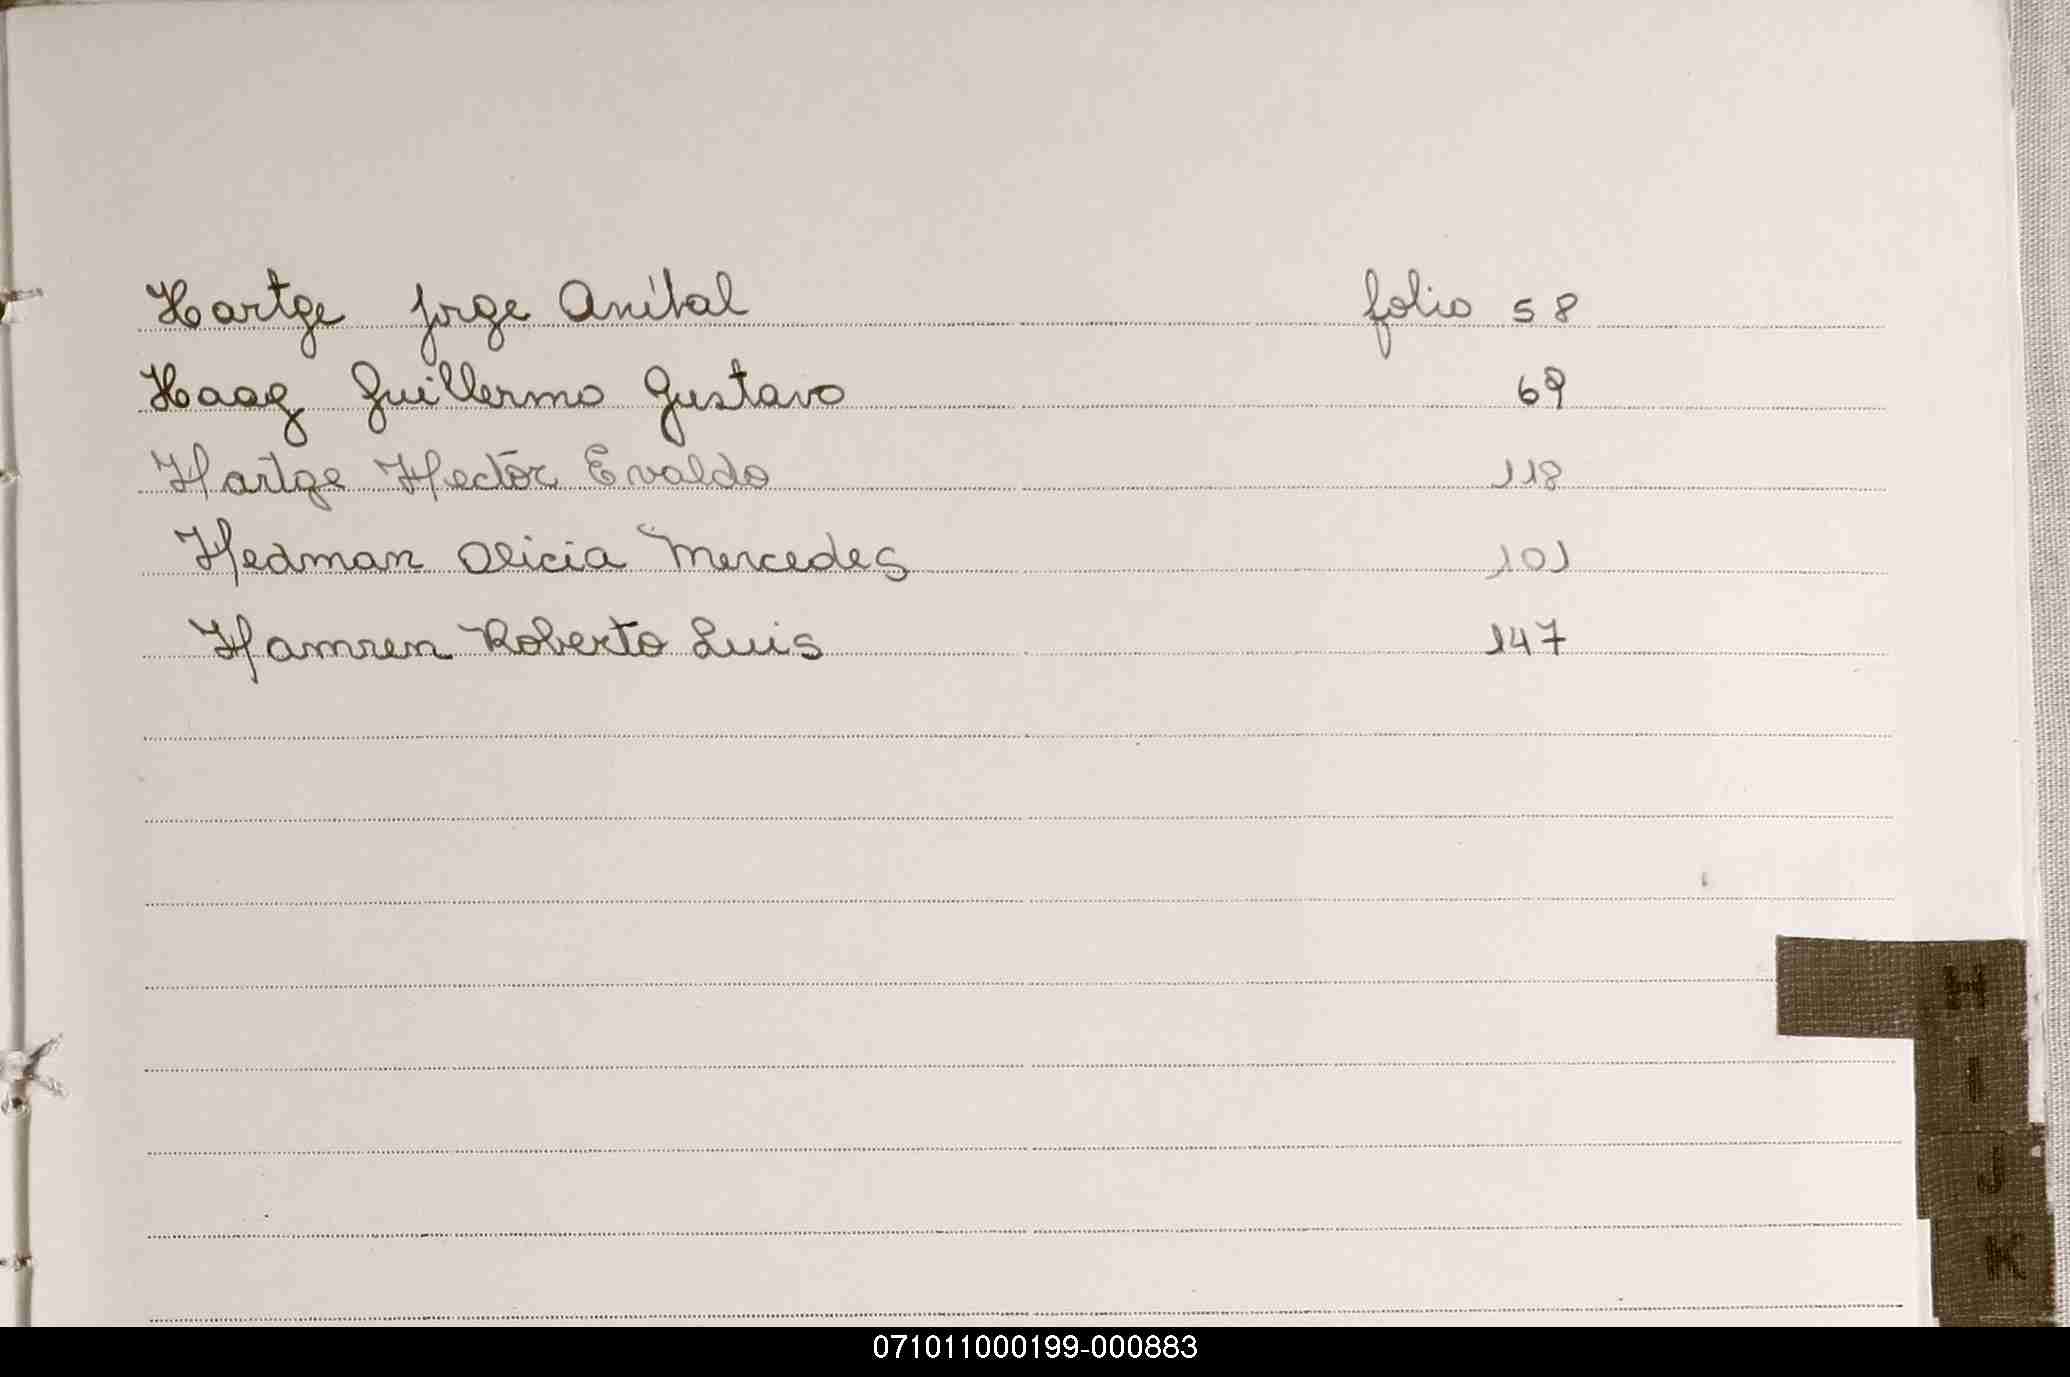 Hartge Jorge Aníbal folio 58
Haag Guillermo Gustavo 69
Hartge Hector Evaldo 118
Hedman Alicia Mercedes 101
Hamren Roberto Luis 147
H
I
J
K
071011000199-000883